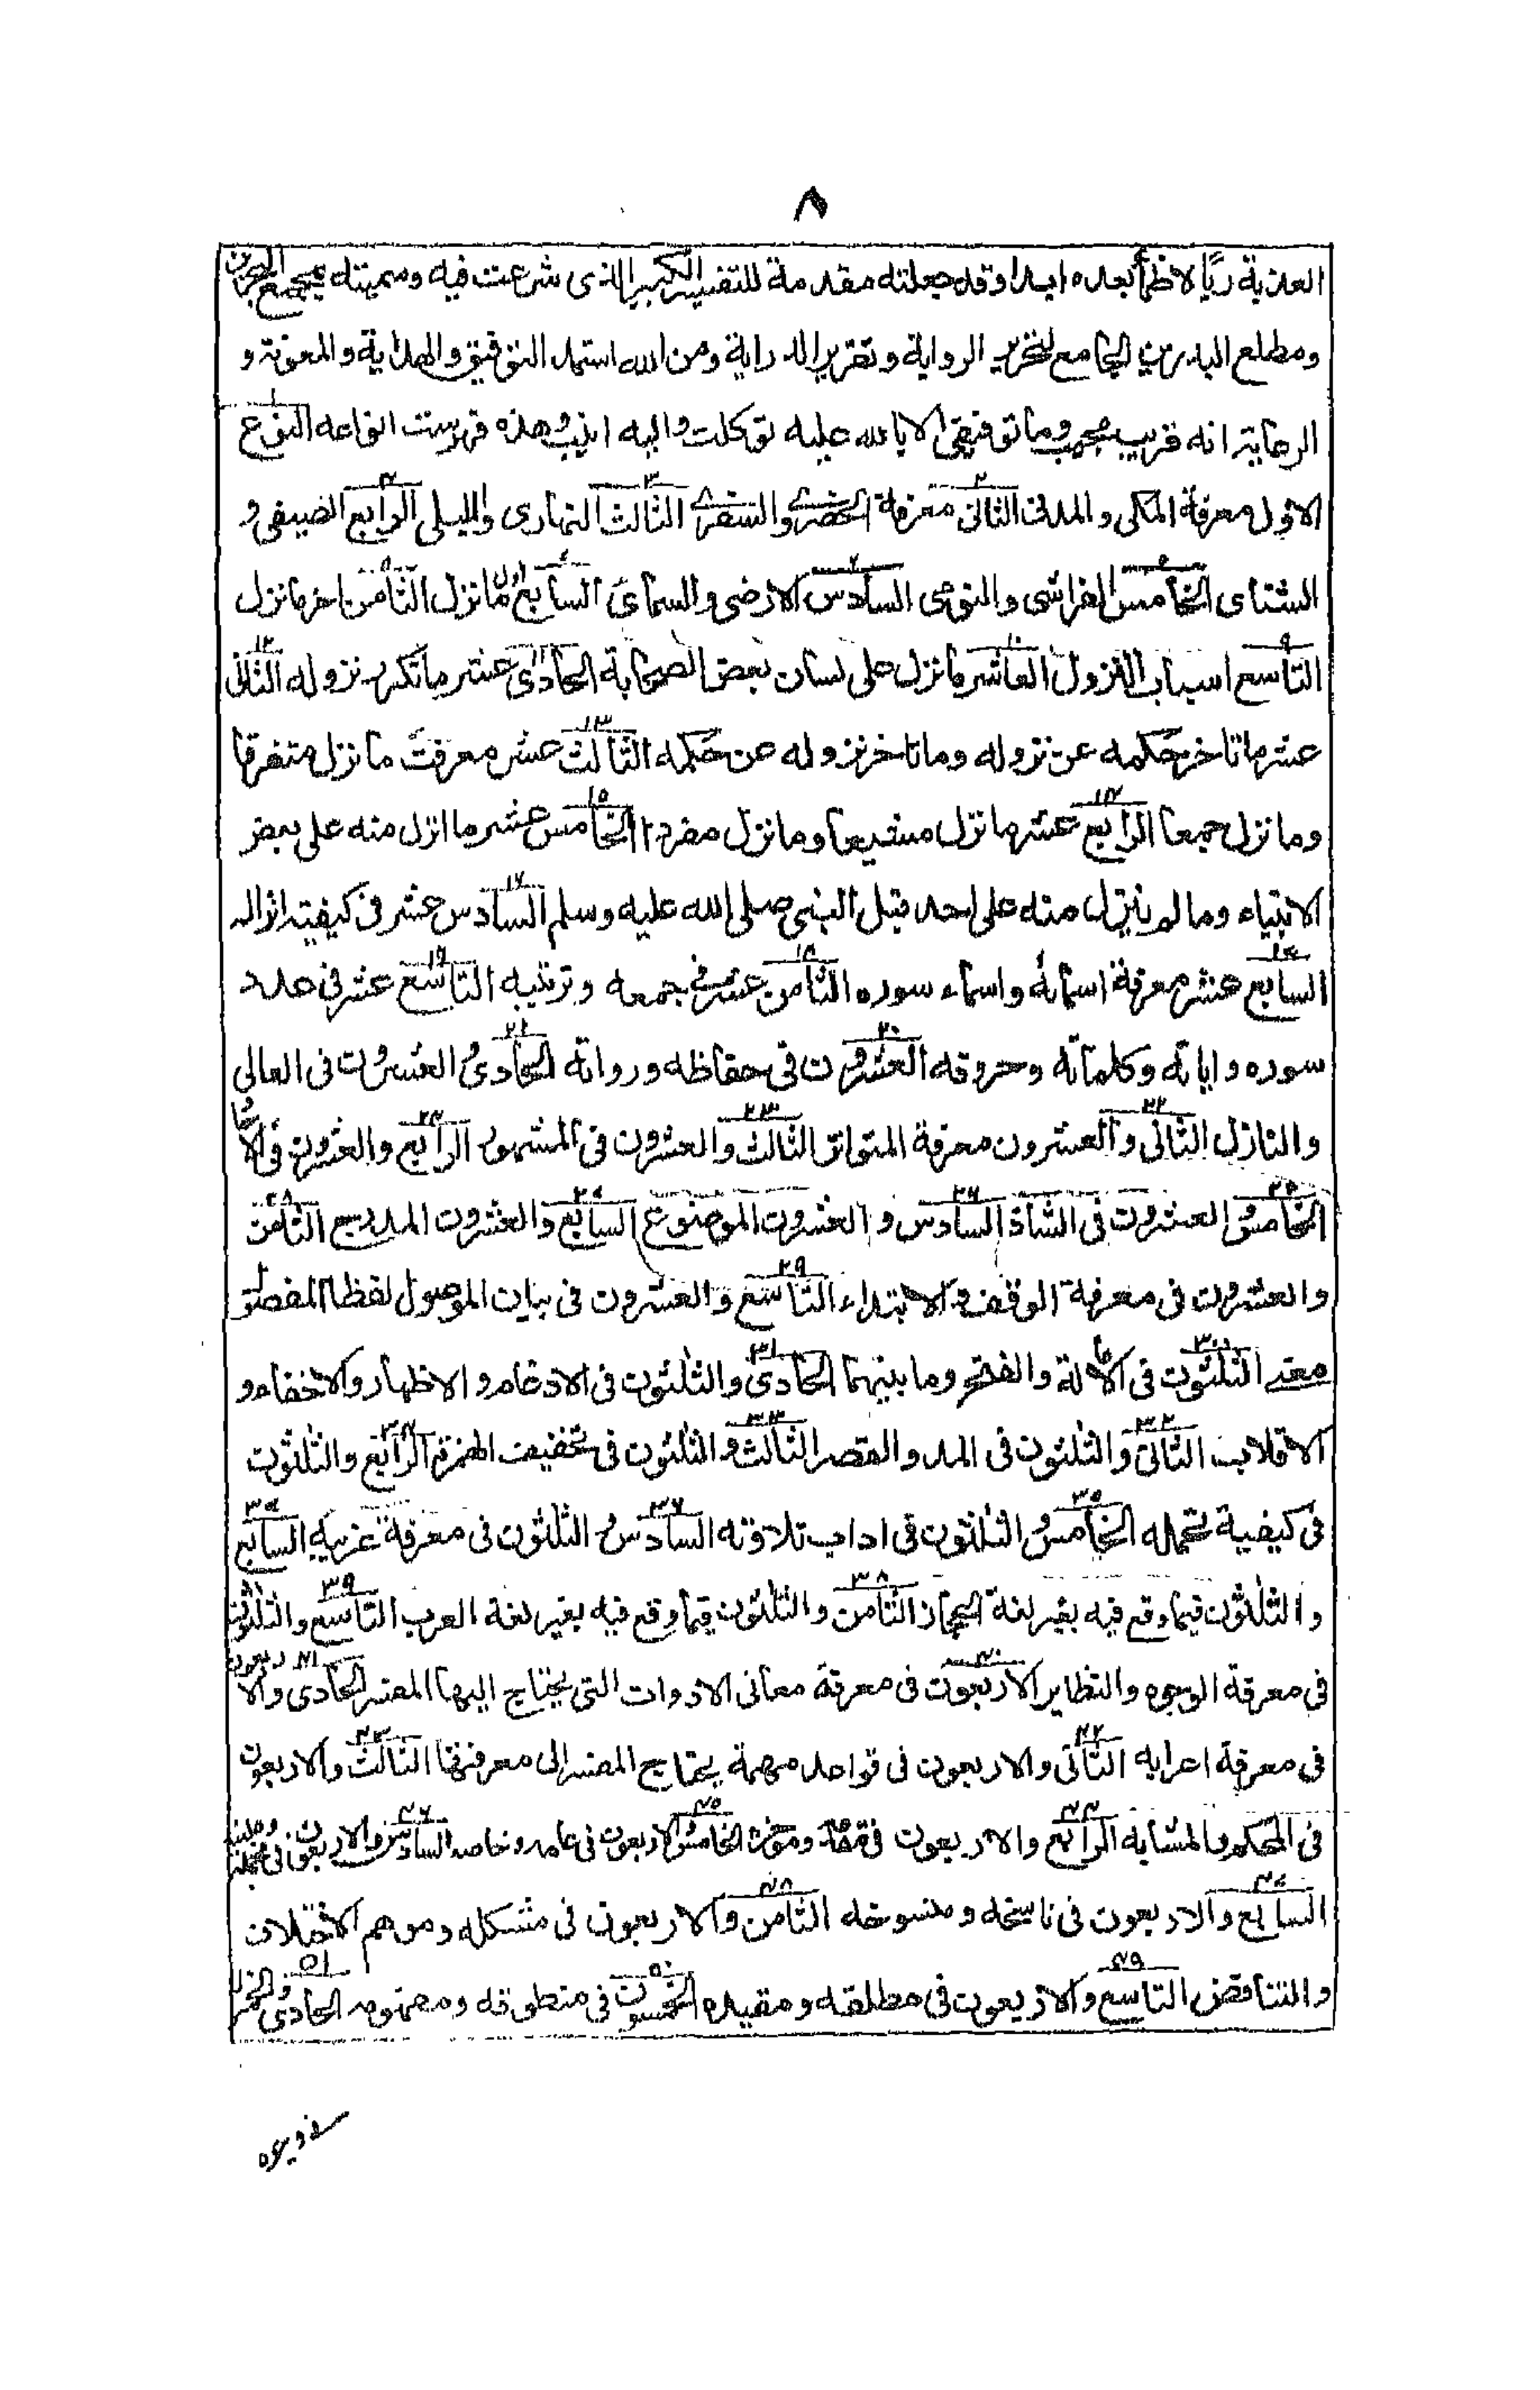 ٨
العذبة ريًا لا ظمأ بعده ابدا وقد جعلته مقدمة للتفسير الكبير الذى شرعت فيه وسميته بمجمع البحرين
ومطلع البدرين الجامع لتحرير الرواية وتقرير الدراية ومن الله استمد التوفيق والهداية والمعونة و
الرعاية انه قريب مجيب وما توفيقى الا بالله عليه توكلت واليه انيب وهذه فهرست انواعه النوع
الاول معرفة المكى والمدنى الثانى معرفة الحضرى والسفرى الثالث النهارى والليلى الرابع الصيفى و
الشتاى الخامس الفراشى والنومى السادس الارضى والسماى السابع اول ما نزل الثامن اخر ما نزل
التاسع اسباب النزول العاشر ما نزل على لسان بعض الصحابة الحادى عشر ما تكرر نزوله الثانى
عشر ما تاخر حكمه عن نزوله وما تاخر نزوله عن حكمه الثالث عشر معرفت ما نزل متفرقا
وما نزل جميعا الرابع عشر ما نزل مشيعا وما نزل مفردا الخامس عشر ما انزل منه على بعض
الانبياء وما لم ينزل منه على احد قبل النبى صلى الله عليه وسلم السادس عشر فى كيفية انزاله
السابع عشر معرفة اسمائه واسماء سوره الثامن عشر فى جمعه وترتيبه التاسع عشر فى عدد
سوره واياته وكلماته وحروفه العشرون فى حفاظه ورواته الحادى والعشرون فى العالى
والنازل الثانى والعشرون معرفة المتواتر الثالث والعشرون فى المشهور الرابع والعشرون فى الاحاد
الخامس والعشرون فى الشاذ السادس والعشرون الموضوع السابع والعشرون المدرج الثامن
والعشرون فى معرفة الوقف والابتداء التاسع والعشرون فى بيان الموصول لفظا المفصول
معنے الثلثون فى الامالة والفتح وما بينهما الحادى والثلثون فى الادغام والاظهار والاخفاء و
الاقلاب الثانى والثلثون فى المد والقصر الثالث والثلثون فى تخفيف الهمزة الرابع والثلثون
فى كيفية تحمله الخامس والثلثون فى اداب تلاوته السادس والثلثون فى معرفة غريبه السابع
والثلثون فيما وقع فيه بغير لغة الحجاز الثامن والثلثون فيما وقع فيه بغير لغة العرب التاسع والثلثون
فى معرفة الوجوه والنظاير الاربعون فى معرفة معانى الادوات التى يحتاج اليها المفسر الحادى والاربعون
فى معرفة اعرابه الثانى والاربعون فى قواعد مهمة يحتاج المفسر الى معرفتها الثالث والاربعون
فى المحكم والمتشابه الرابع والاربعون فى مقدمه ومؤخره الخامس والاربعون فى عامه وخاصه السادس والاربعون فى مجمله ومبينه
السابع والاربعون فى ناسخه ومنسوخه الثامن والاربعون فى مشكله وموهم الاختلاف
والتناقض التاسع والاربعون فى مطلقه ومقيده الخمسون فى منطوقه ومفهومه الحادى والخمسون